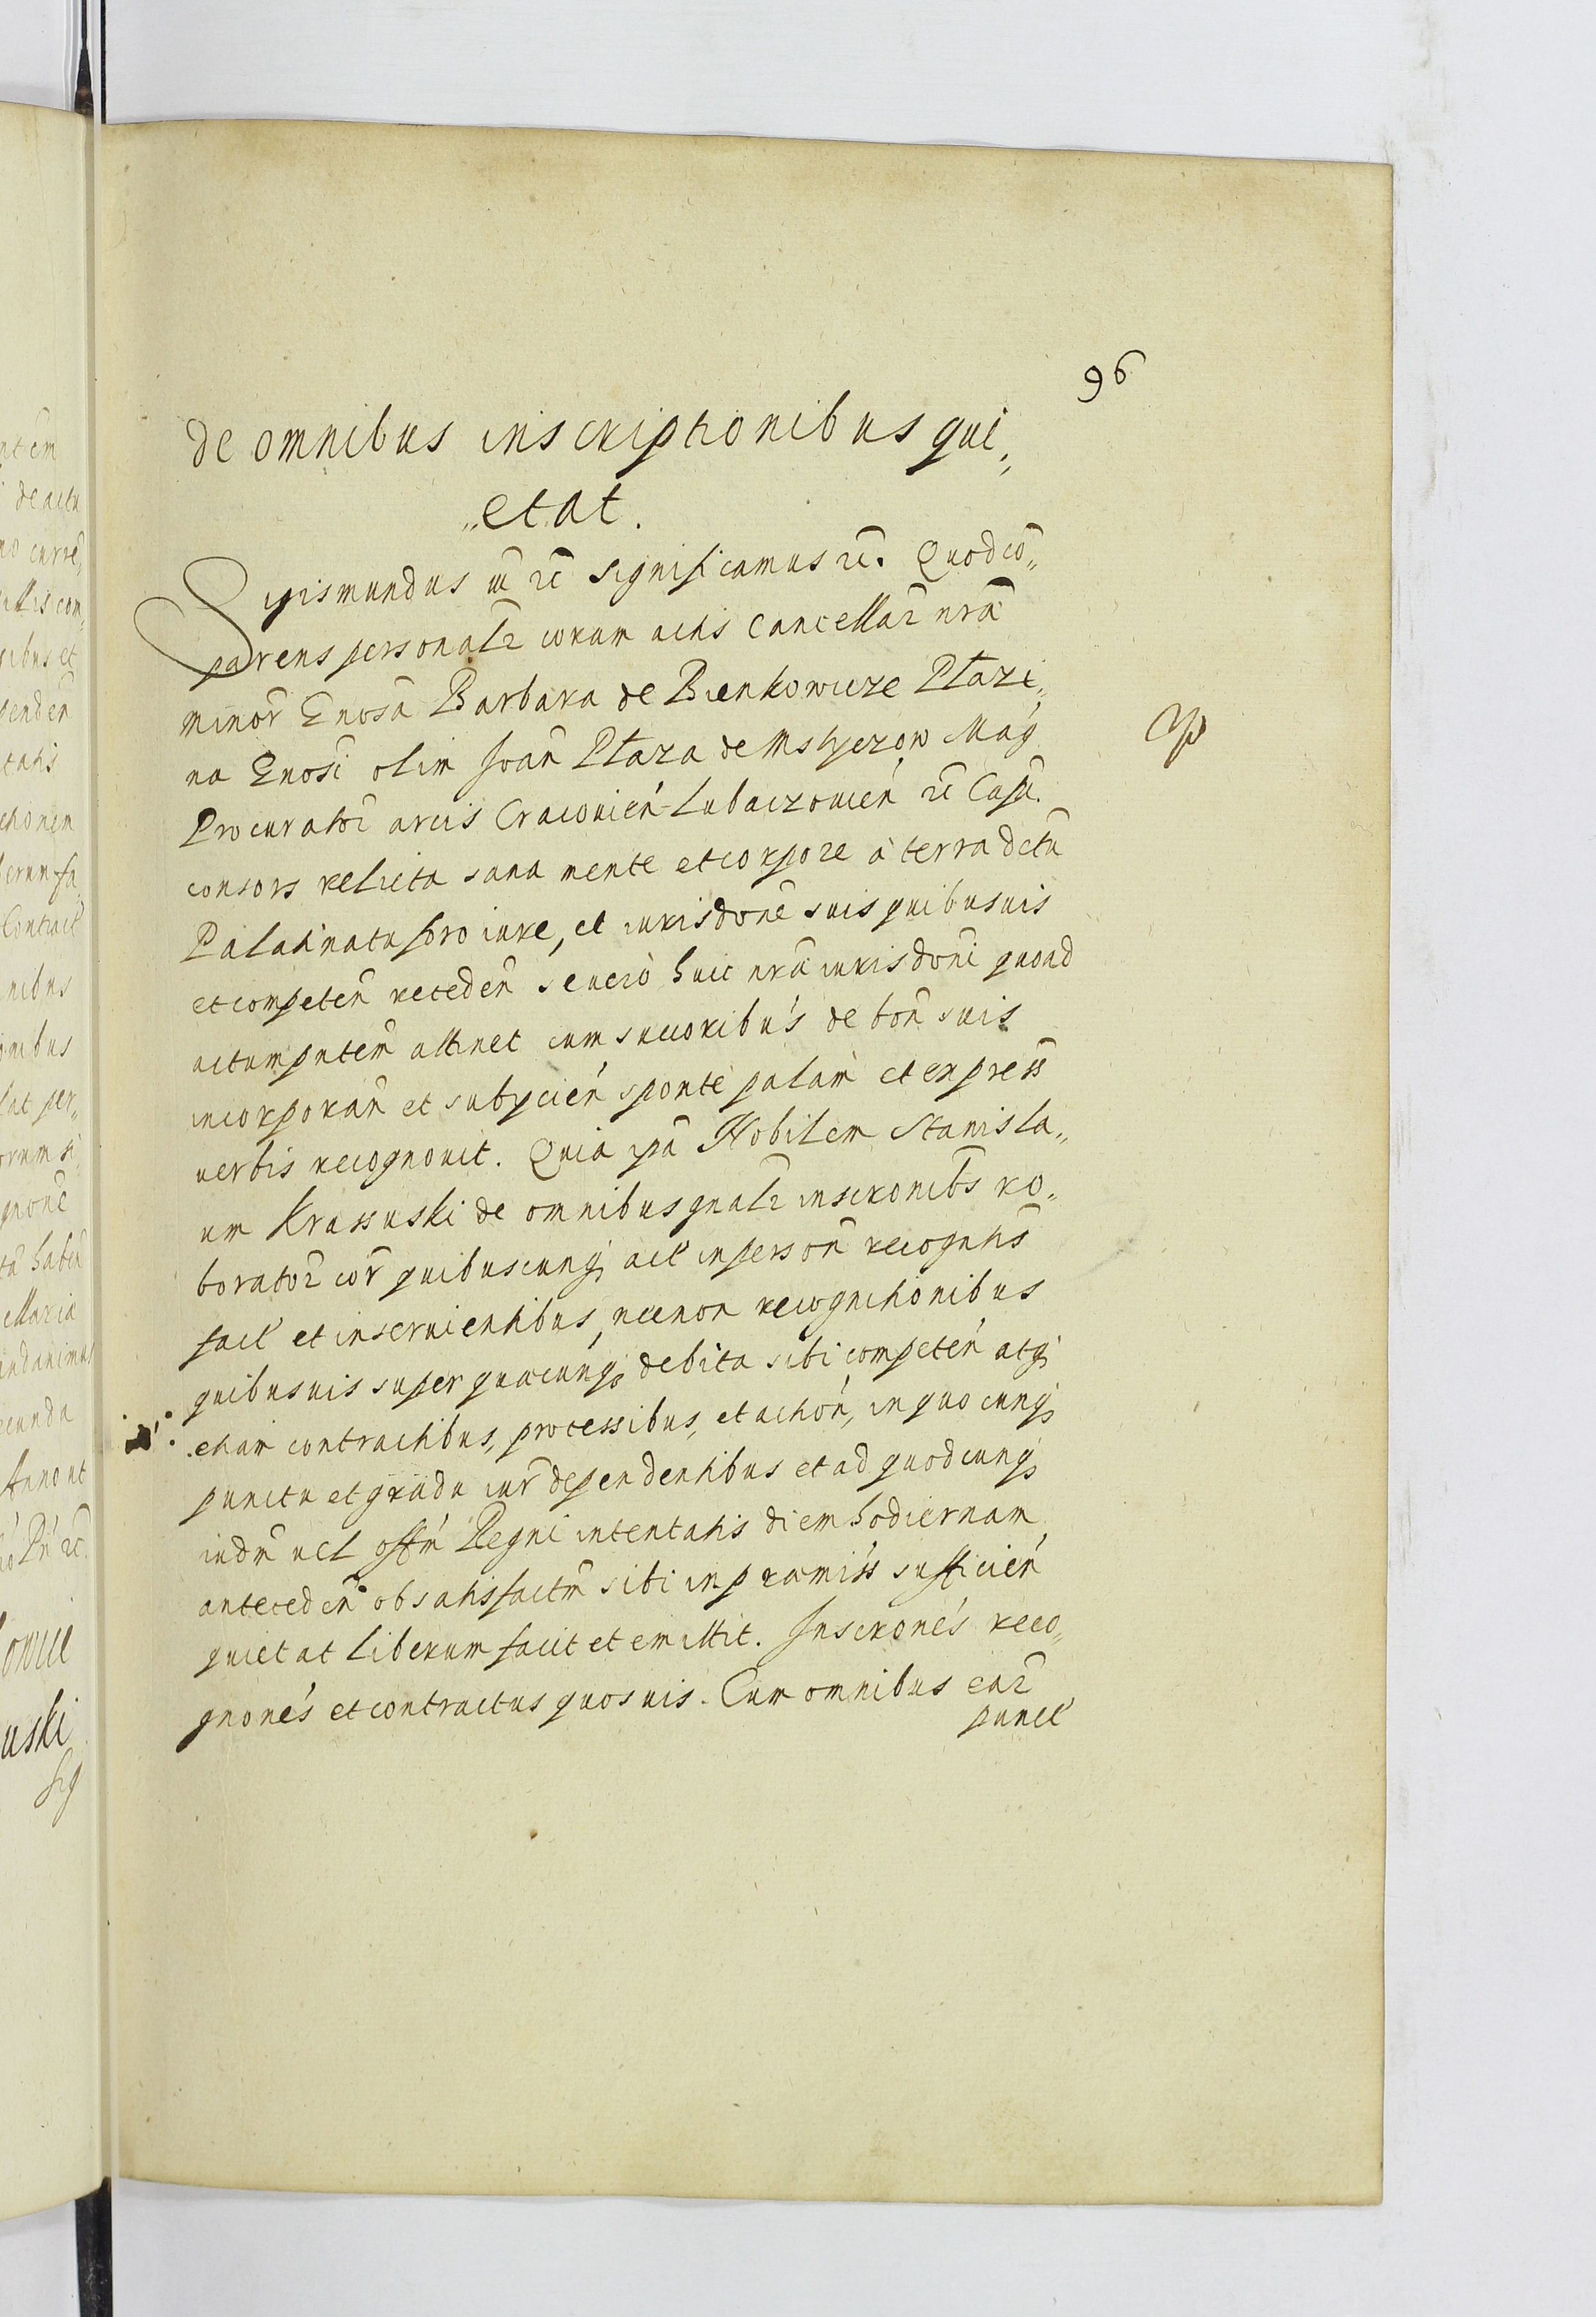 96
de omnibus inscriptionibus qui„
„etat.
Sigismundus III etc significamus etc. Quod com„
parens personalr coram actis Cancellar nrã
minor Gnosã Barbara de Bienkowice Płazi„
na Gnosi olim Joan Płaza de Mstyczow Mag
Procurator arcis Cracouien Lubaczouien etc Capit.
consors relicta sana mente et corpore à terra distr
Palatinatu foro iure, et iurisdone suis quibusuis
et competen receden se uerò huic nrã iurisdoni quoad
actum pntem attinet cum succoribus de bon suis
incorporan et subycien sponte palam et express
uerbis recognouit. Quia ipa Nobilem Stanisla„
um Krassuski de omnibus gnalr inscronibs ro„
borator cor quibuscunq act in person recognitis
fact et inseruientibus, necnon recognitionibus
quibusuis super quaecunq debita sibi competen atq
etiam contractibus, processibus, et action, in quocunq
punctu et gradu iur dependentibus et ad quodcunq
iudm uel offm Regni intentatis diem hodiernam
anteceden ob satisfactm sibi in praemiss sufficien
quietat liberum facit et emittit. Inscrones reco„
gnones et contractus quosuis. Cum omnibus ear
punct